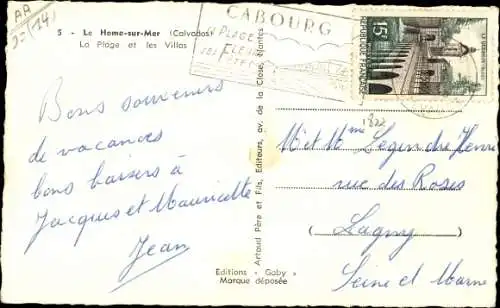 AA
5 - Le Home-sur-Mer (Calvados)
La Plage et les Villas
CABOURG
SA PLAGE
SES
15F
REPUBLIQUE FRANÇAISE
1822
Bons souvenirs
de vacances
bons baisers à
Jacques et Mauricette
Jean
Artaud Père et Fils, Editeurs, av. de la Close, Nantes
Editions - Gaby -
Marque déposée
M et Mme Legendre Henri
rue des Roses
Lagny
Seine et Marne